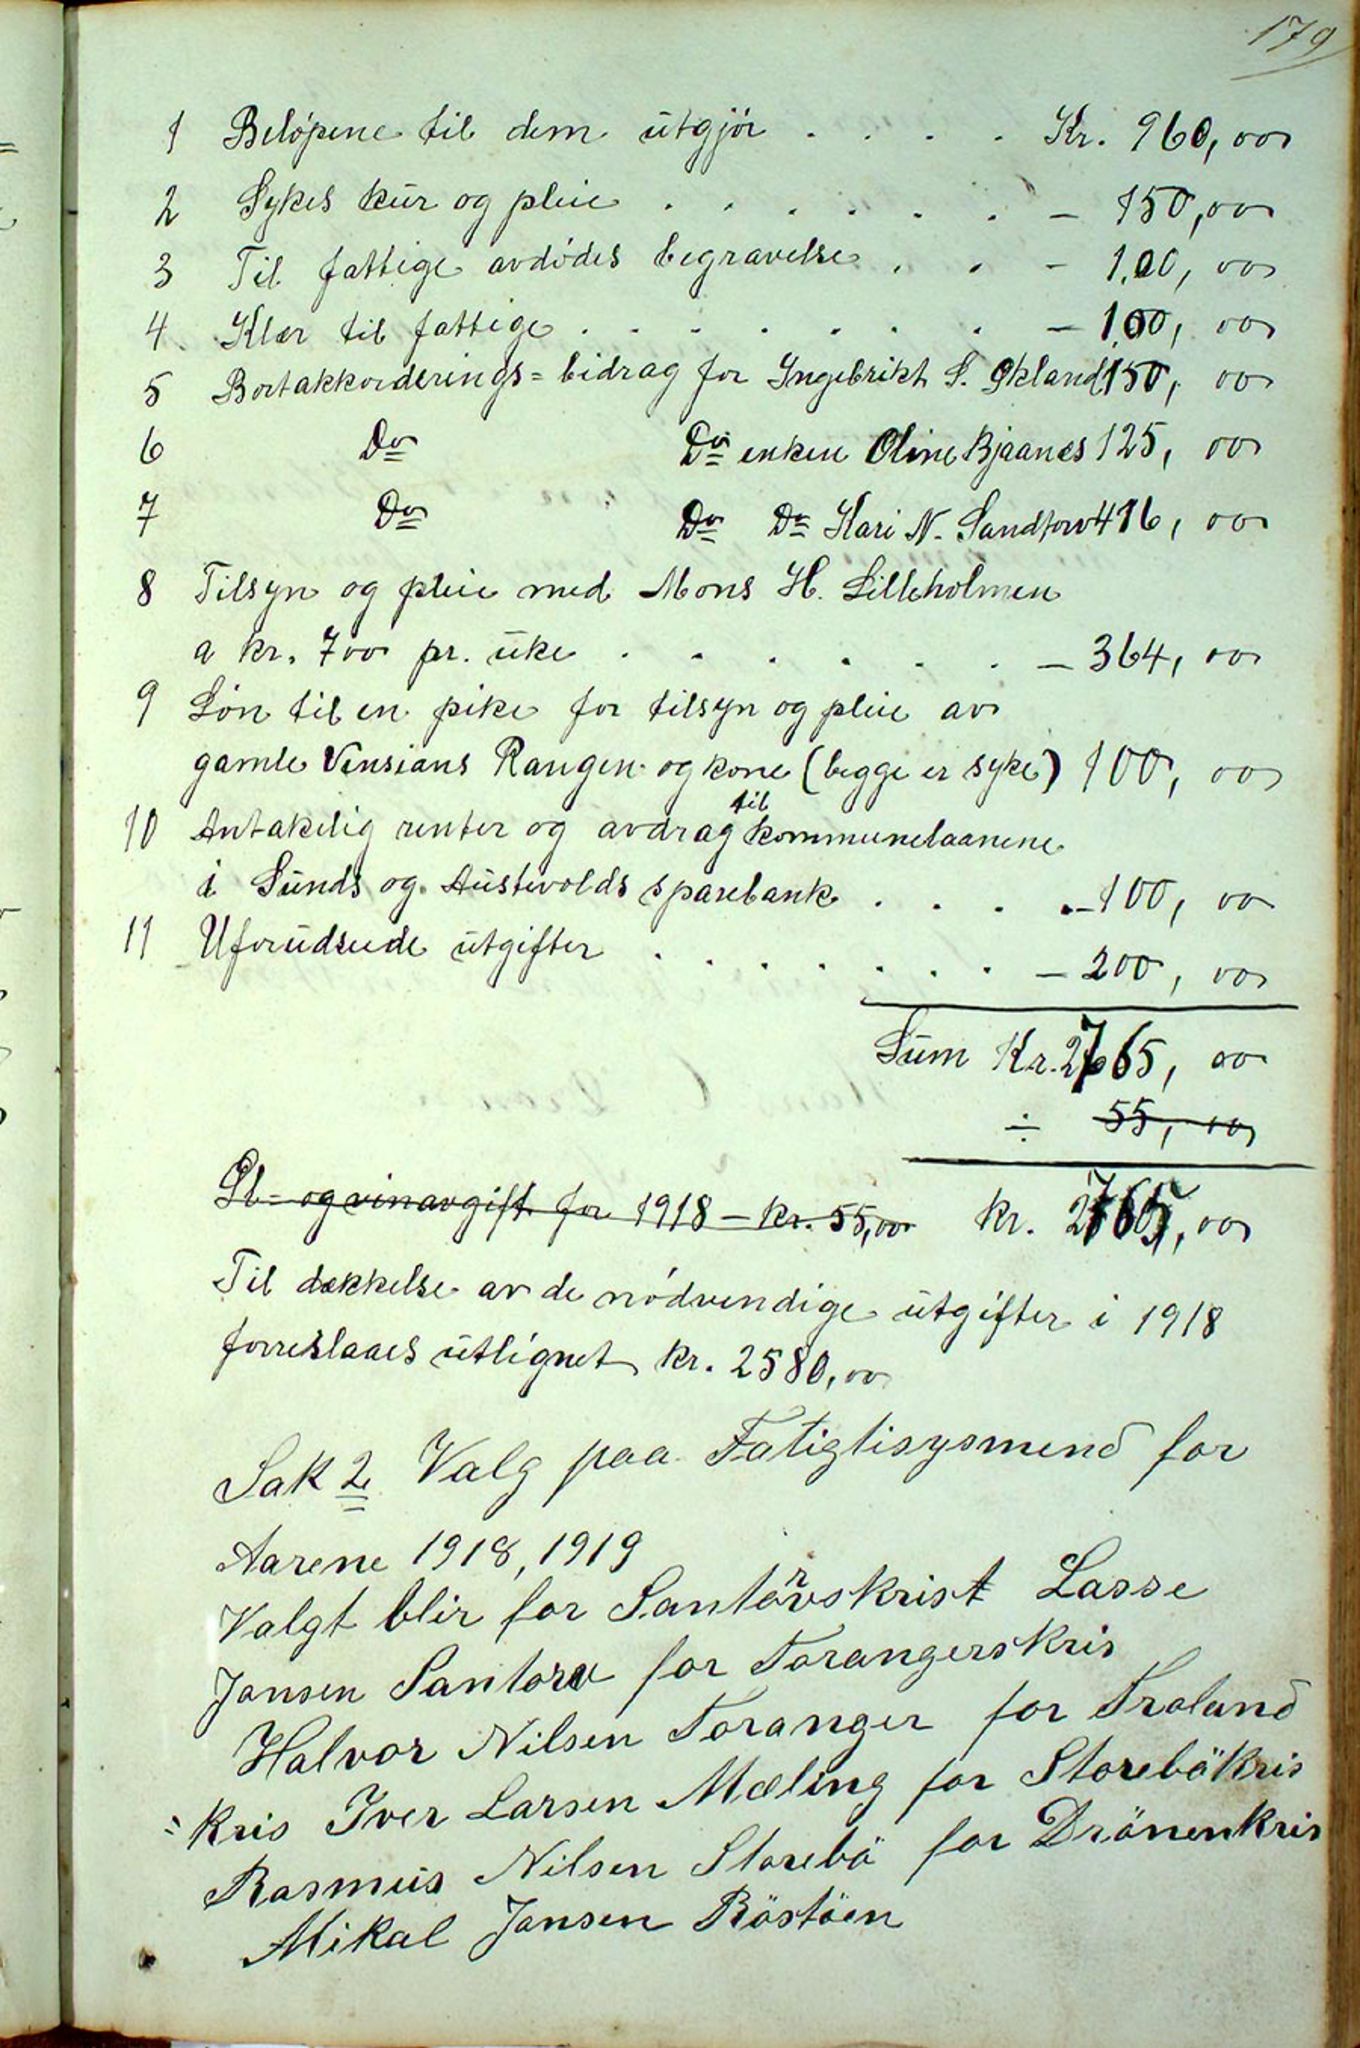 179
1 Beløpene til dem utgjør . . . . Kr. 960,00
2 Sykes kur og pleie . . . . . . — 150,00
3 Til fattige avdødes begravelse . . — 100,00
4 Klær til fattige . . . . . . . — 100,00
5 Bortakkorderings=bidrag for Ingebrikt S. Økland 150,00
6 Do Do enken Oline Bjaanes 125,00
7 Do Do Do Kari N. Sandtorv 416,00
8 Tilsyn og pleie med Mons H. Lilleholmen
a kr. 700 pr. uke . . . . . . — 364,00
9 Løn til en pike for tilsyn og pleie av
gamle Vensians Rangen og kone (begge er syke) 100,00
10 Antakelig renter og avdrag til kommunelaanene
i Sunds og Austevolds sparebank . . . . — 100,00
11 Uforudseede utgifter . . . . . . . — 200,00
Sum Kr. 2765,00
÷ 55,00
Øl= og vinavgift for 1918 — kr. 55,00 kr. 2765,00
Til dækkelse av de nødvendige utgifter i 1918
forreslaaes utlignet kr. 2580,00
Sak 2 Valg paa Fatigtisysmend for
Aarene 1918, 1919
Valgt blir for Santörvskrist Lasse
Jansen Santorv for Torangerskris
Halvor Nilsen Toranger for Troland
= kris Iver Larsen Mæling for Storebökris
Rasmus Nilsen Storebö for Drönenkris
Mikal Jansen Röstöen